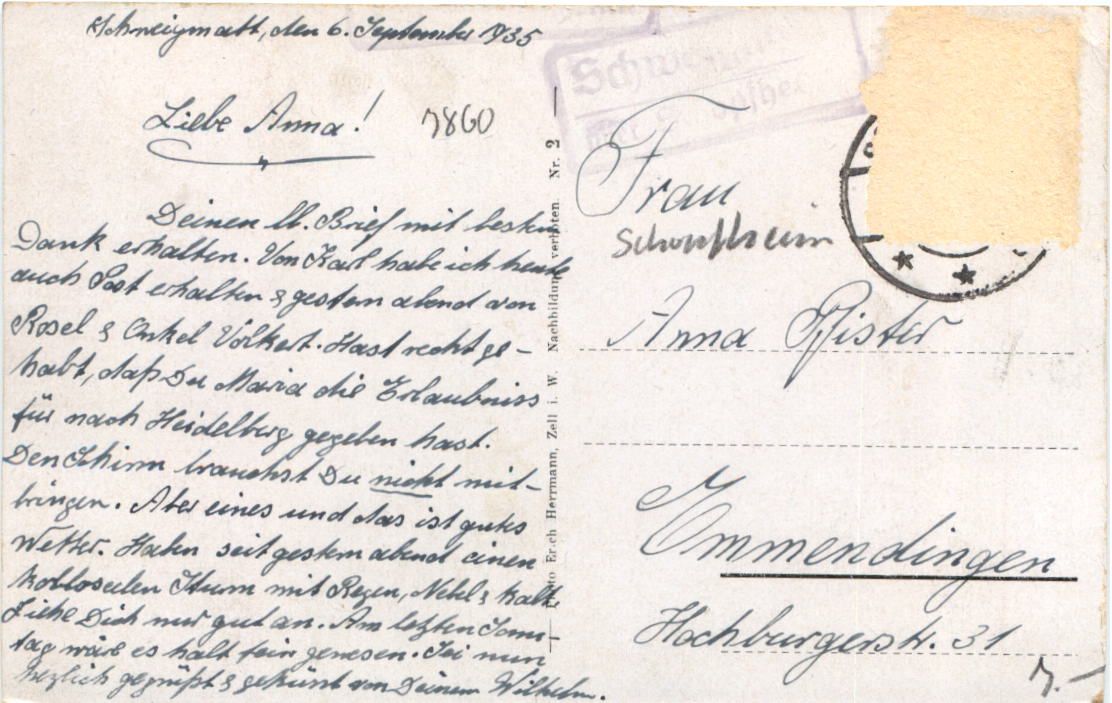 Schweigmatt, den 6. September 1935
Liebe Anna!
7860
Deinen ll. Brief mit bestem
Dank erhalten. Von Karl habe ich heute
auch Post erhalten & gestern abend von
Rosel & Onkel Volkert. Hast recht ge-
habt, daß Du Maria die Erlaubniss
für nach Heidelberg gegeben hast.
Den Schirm brauchst Du nicht mit-
bringen. Aber eines und das ist gutes
Wetter. Haben seit gestern abend einen
kollosalen Sturm mit Regen, Nebel & kalt.
Ziehe Dich nur gut an. Am letzten Sonn-
tag wäre es halt fein gewesen. Sei nun
herzlich gegrüßt & geküsst von Deinem Wilhelm.
Foto Erich Herrmann, Zell i. W. Nachbildung verboten. Nr. 2
Frau
Schopfheim
Anna Pfister
Emmendingen
Hochburgerstr. 31